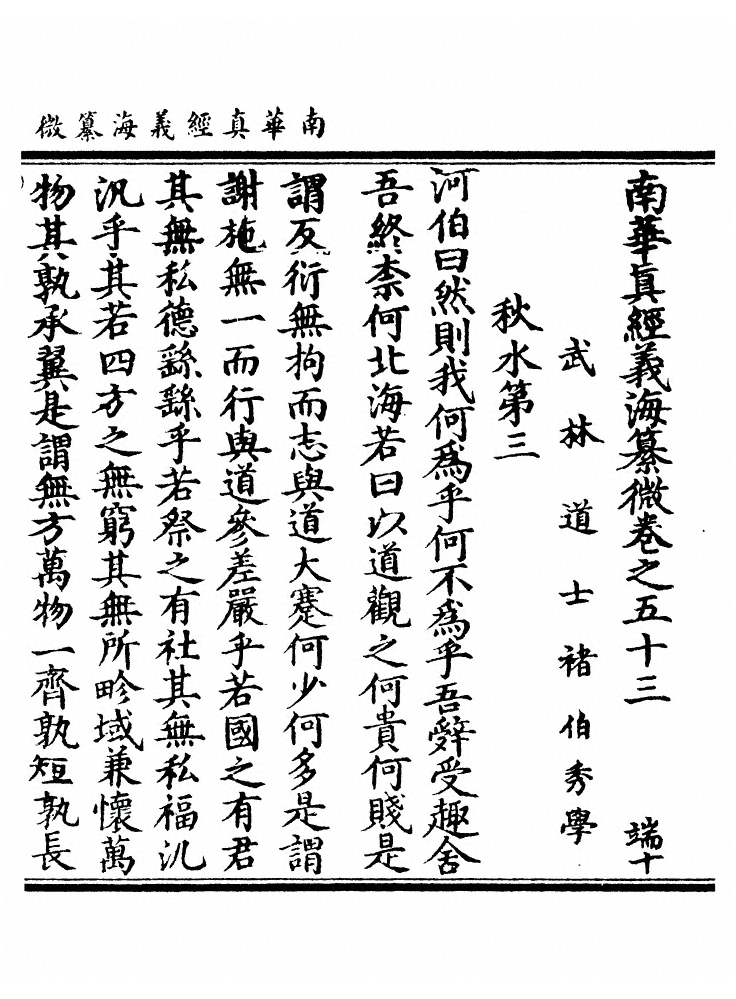 南華真經義海纂微
南華眞經義海纂微卷之五十三 端十
武林道士褚伯秀學
秋水第三
河伯曰然則我何爲乎何不爲乎吾辤受趣舍
吾終柰何北海若曰以道觀之何貴何賤是
謂反衍無拘而志與道大蹇何少何多是謂
謝施無一而行與道參差嚴乎若國之有君
其無私德繇繇乎若祭之有社其無私福汎
汎乎其若四方之無窮其無所畛域兼懷萬
物其孰承翼是謂無方萬物一齊孰短孰長